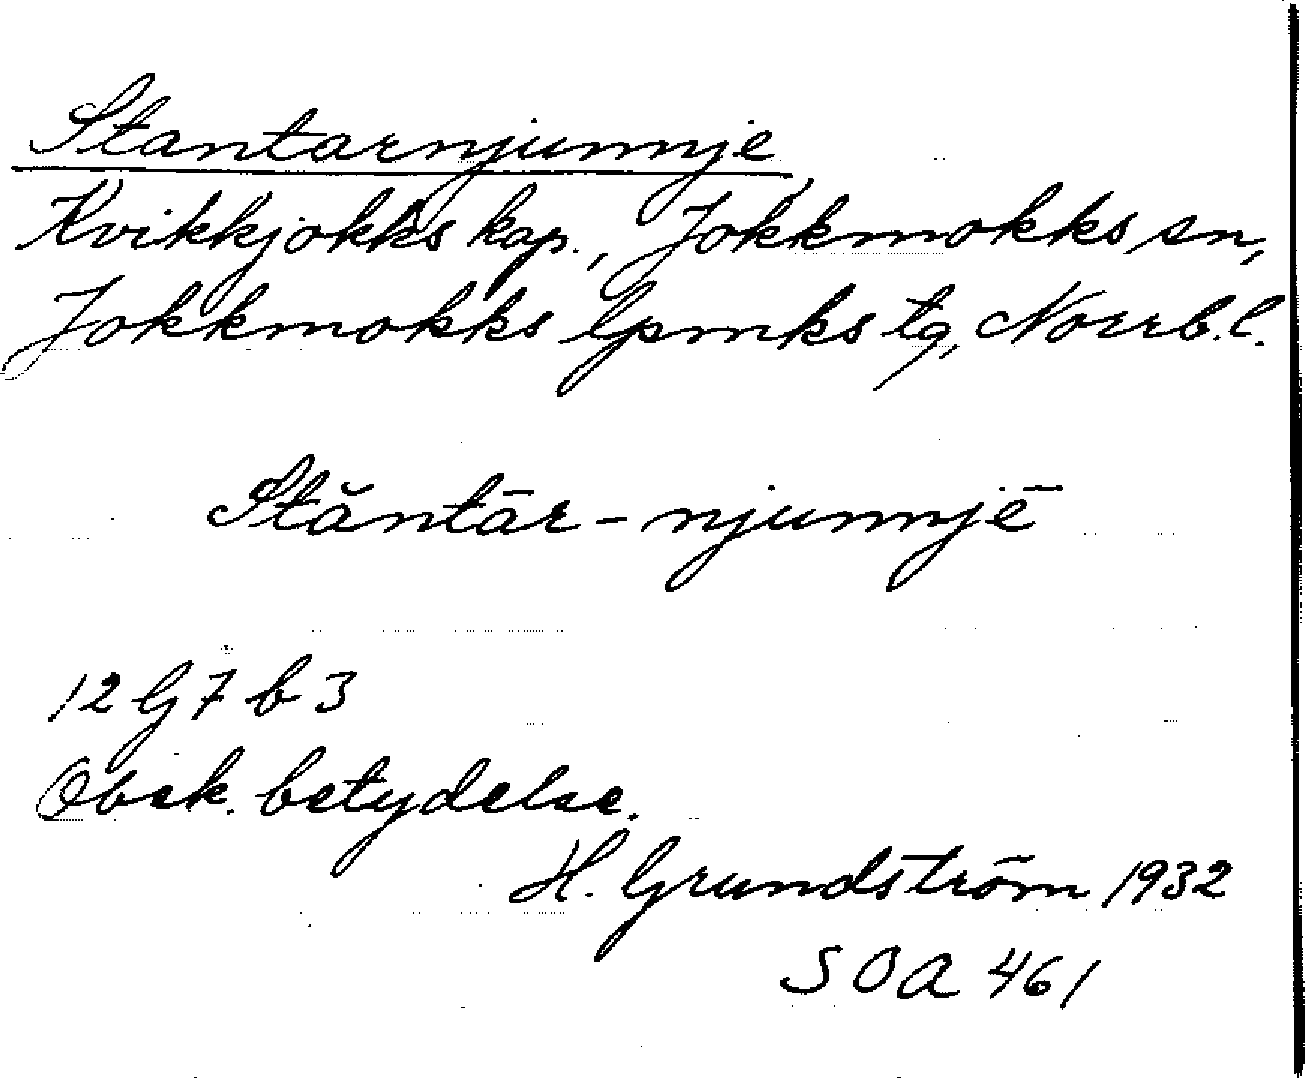 Stantarnjunnje
Kvikkjokks kap., Jokkmokks sn,
Jokkmokks lpmks tg, Norrb.l.
Stăntār-njunnjē
12 G 7 b 3
Obek. betydelse.
H. Grundström 1932
SOA 461